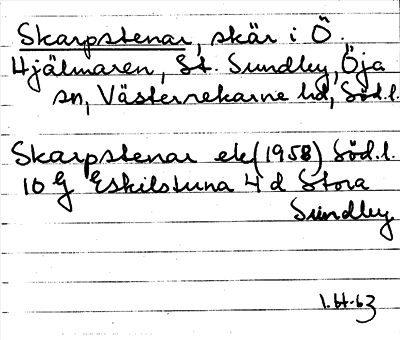 Skarpstenar, skär i Ö.
Hjälmaren, St. Sundby, Öja
sn, Västerrekarne hd, Söd.l.
Skarpstenar ek (1958) Söd.l.
10 G Eskilstuna 4 d Stora
Sundby